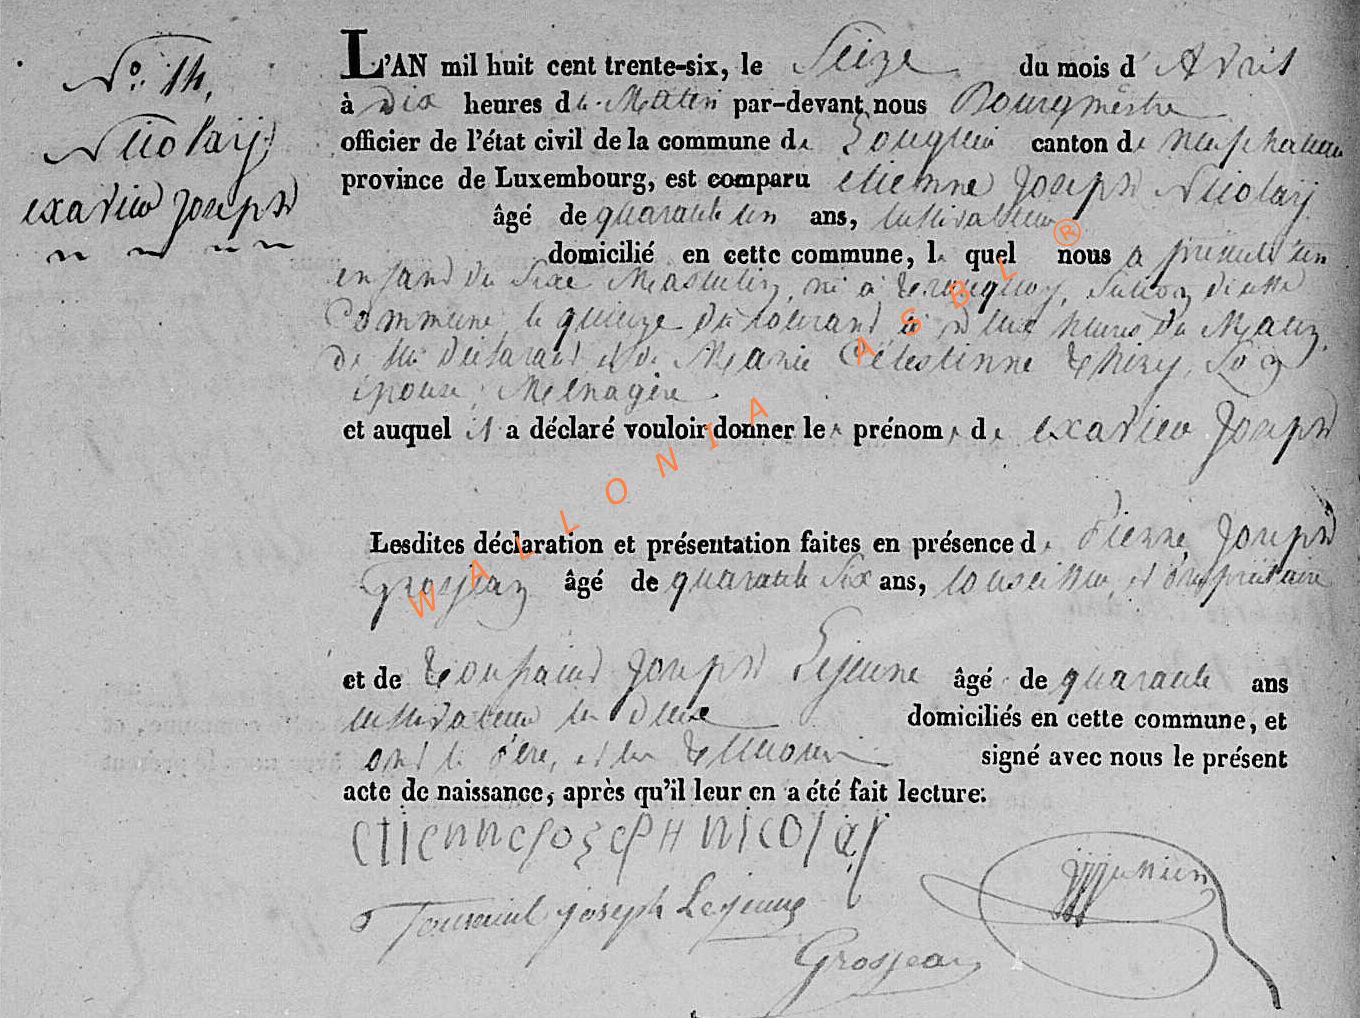 N.º 14.
Nicolaÿ
exavier Joseph
L'AN mil huit cent trente-six, le Seize du mois d'Avril
à Dix heures du Matin par-devant nous Bourgmestre
officier de l'état civil de la commune de Longlier canton de Neufchateau
province de Luxembourg, est comparu etienne Joseph Nicolaÿ
âgé de quarante un ans, cultivateur
domicilié en cette commune, le quel nous a présenté un
enfant du Sexe Masculin, né à tronquoy, Section dicette
Commune, le quinze du courant à deux heures du Matin,
de lui déclarant et de Marie Célestinne thiry, Son
épouse, Ménagère.
et auquel il a déclaré vouloir donner les prénoms de exavier Joseph
Lesdites déclaration et présentation faites en présence de Pierre Joseph
Grosjean âgé de quarante Six ans, et propriétaire
et de toussaint Joseph Lejeune âgé de quarante ans
cultivateur les deux domiciliés en cette commune, et
ont le Père, et les témoins signé avec nous le présent
acte de naissance, après qu'il leur en a été fait lecture:
etienne joseph nicolaÿ
Toussaint joseph Lejeune
Grosjean
WALLONIA ASBL ®